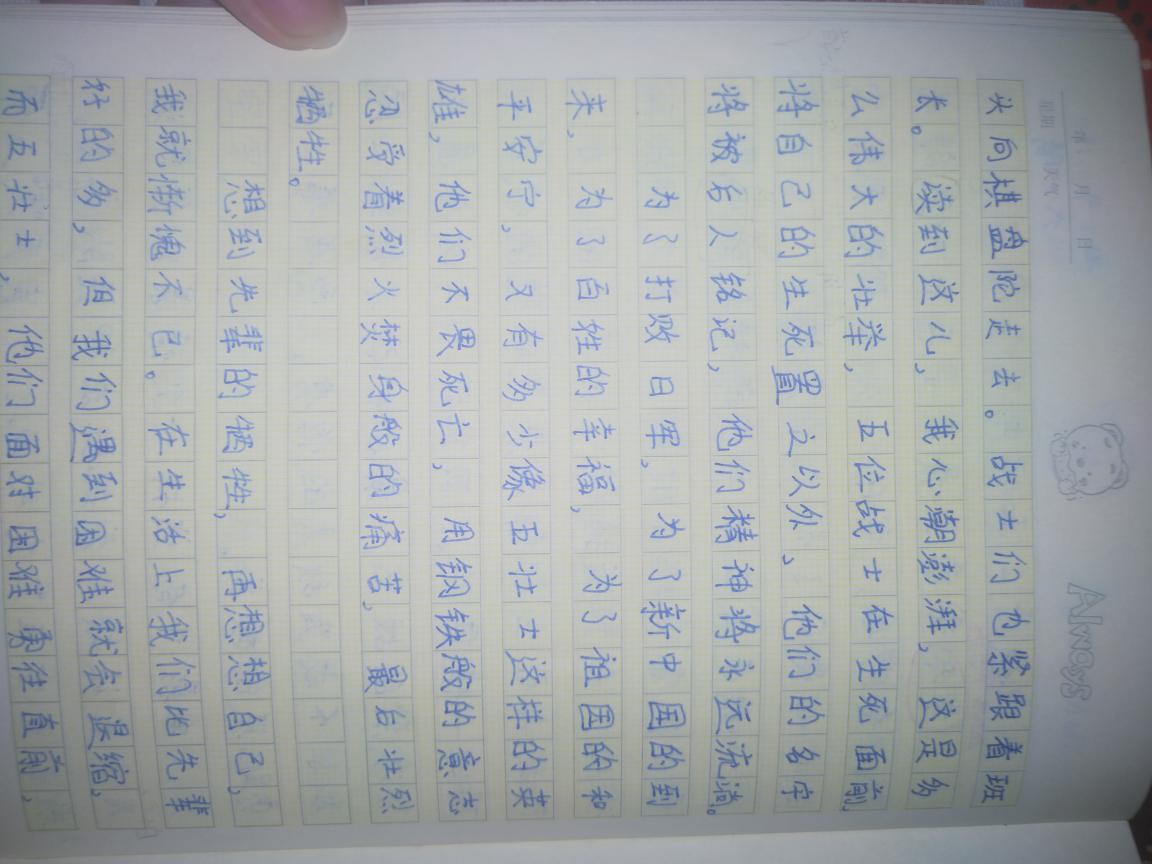 Always
年 月 日
星期 天气
头向棋盘陀走去。战士们也紧跟着班
长。读到这儿,我心潮澎湃,这是多
么伟大的壮举,五位战士在生死面前,
将自己的生死置之以外、他们的名字
将被后人铭记,他们精神将永远流淌。
为了打败日军,为了新中国的到
来,为了百姓的幸福,为了祖国的和
平安宁,又有多少像五壮士这样的英
雄,他们不畏死亡,用钢铁般的意志
忍受着烈火焚身般的痛苦,最后壮烈
牺牲。
想到先辈的牺牲,再想想自己,
我就惭愧不已。在生活上我们比先辈
好的多,但我们遇到困难就会退缩,
而五壮士,他们面对困难勇往直前,